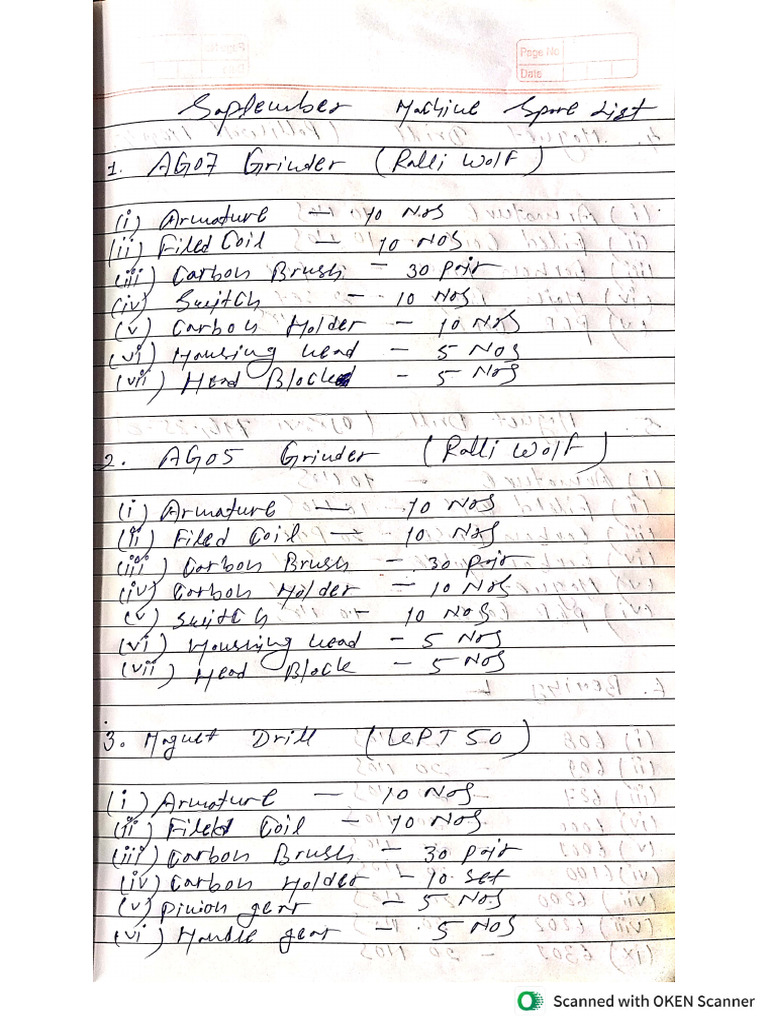 Page No
Date
September Machine Spare List
1. AG07 Grinder (Ralli Wolf)
(i) Armature — 10 Nos
(ii) Filed Coil — 10 NOS
(iii) Carbon Brush — 30 pair
(iv) Switch — 10 Nos
(v) Carbon Holder — 10 Nos
(vi) Housing head — 5 Nos
(vii) Head Block — 5 Nos
2. AG05 Grinder (Ralli Wolf)
(i) Armature — 10 Nos
(ii) Filed Coil — 10 Nos
(iii) Carbon Brush — 30 pair
(iv) Carbon Holder — 10 Nos
(v) Switch — 10 Nos
(vi) Houshing head — 5 Nos
(vii) Head Block — 5 Nos
3. Magnet Drill (50)
(i) Armature — 10 Nos
(ii) Filed Coil — 10 Nos
(iii) Carbon Brush — 30 pair
(iv) Carbon Holder — 10 set
(v) Pinion gear — 5 Nos
(vi) gear — 5 Nos
Scanned with OKEN Scanner